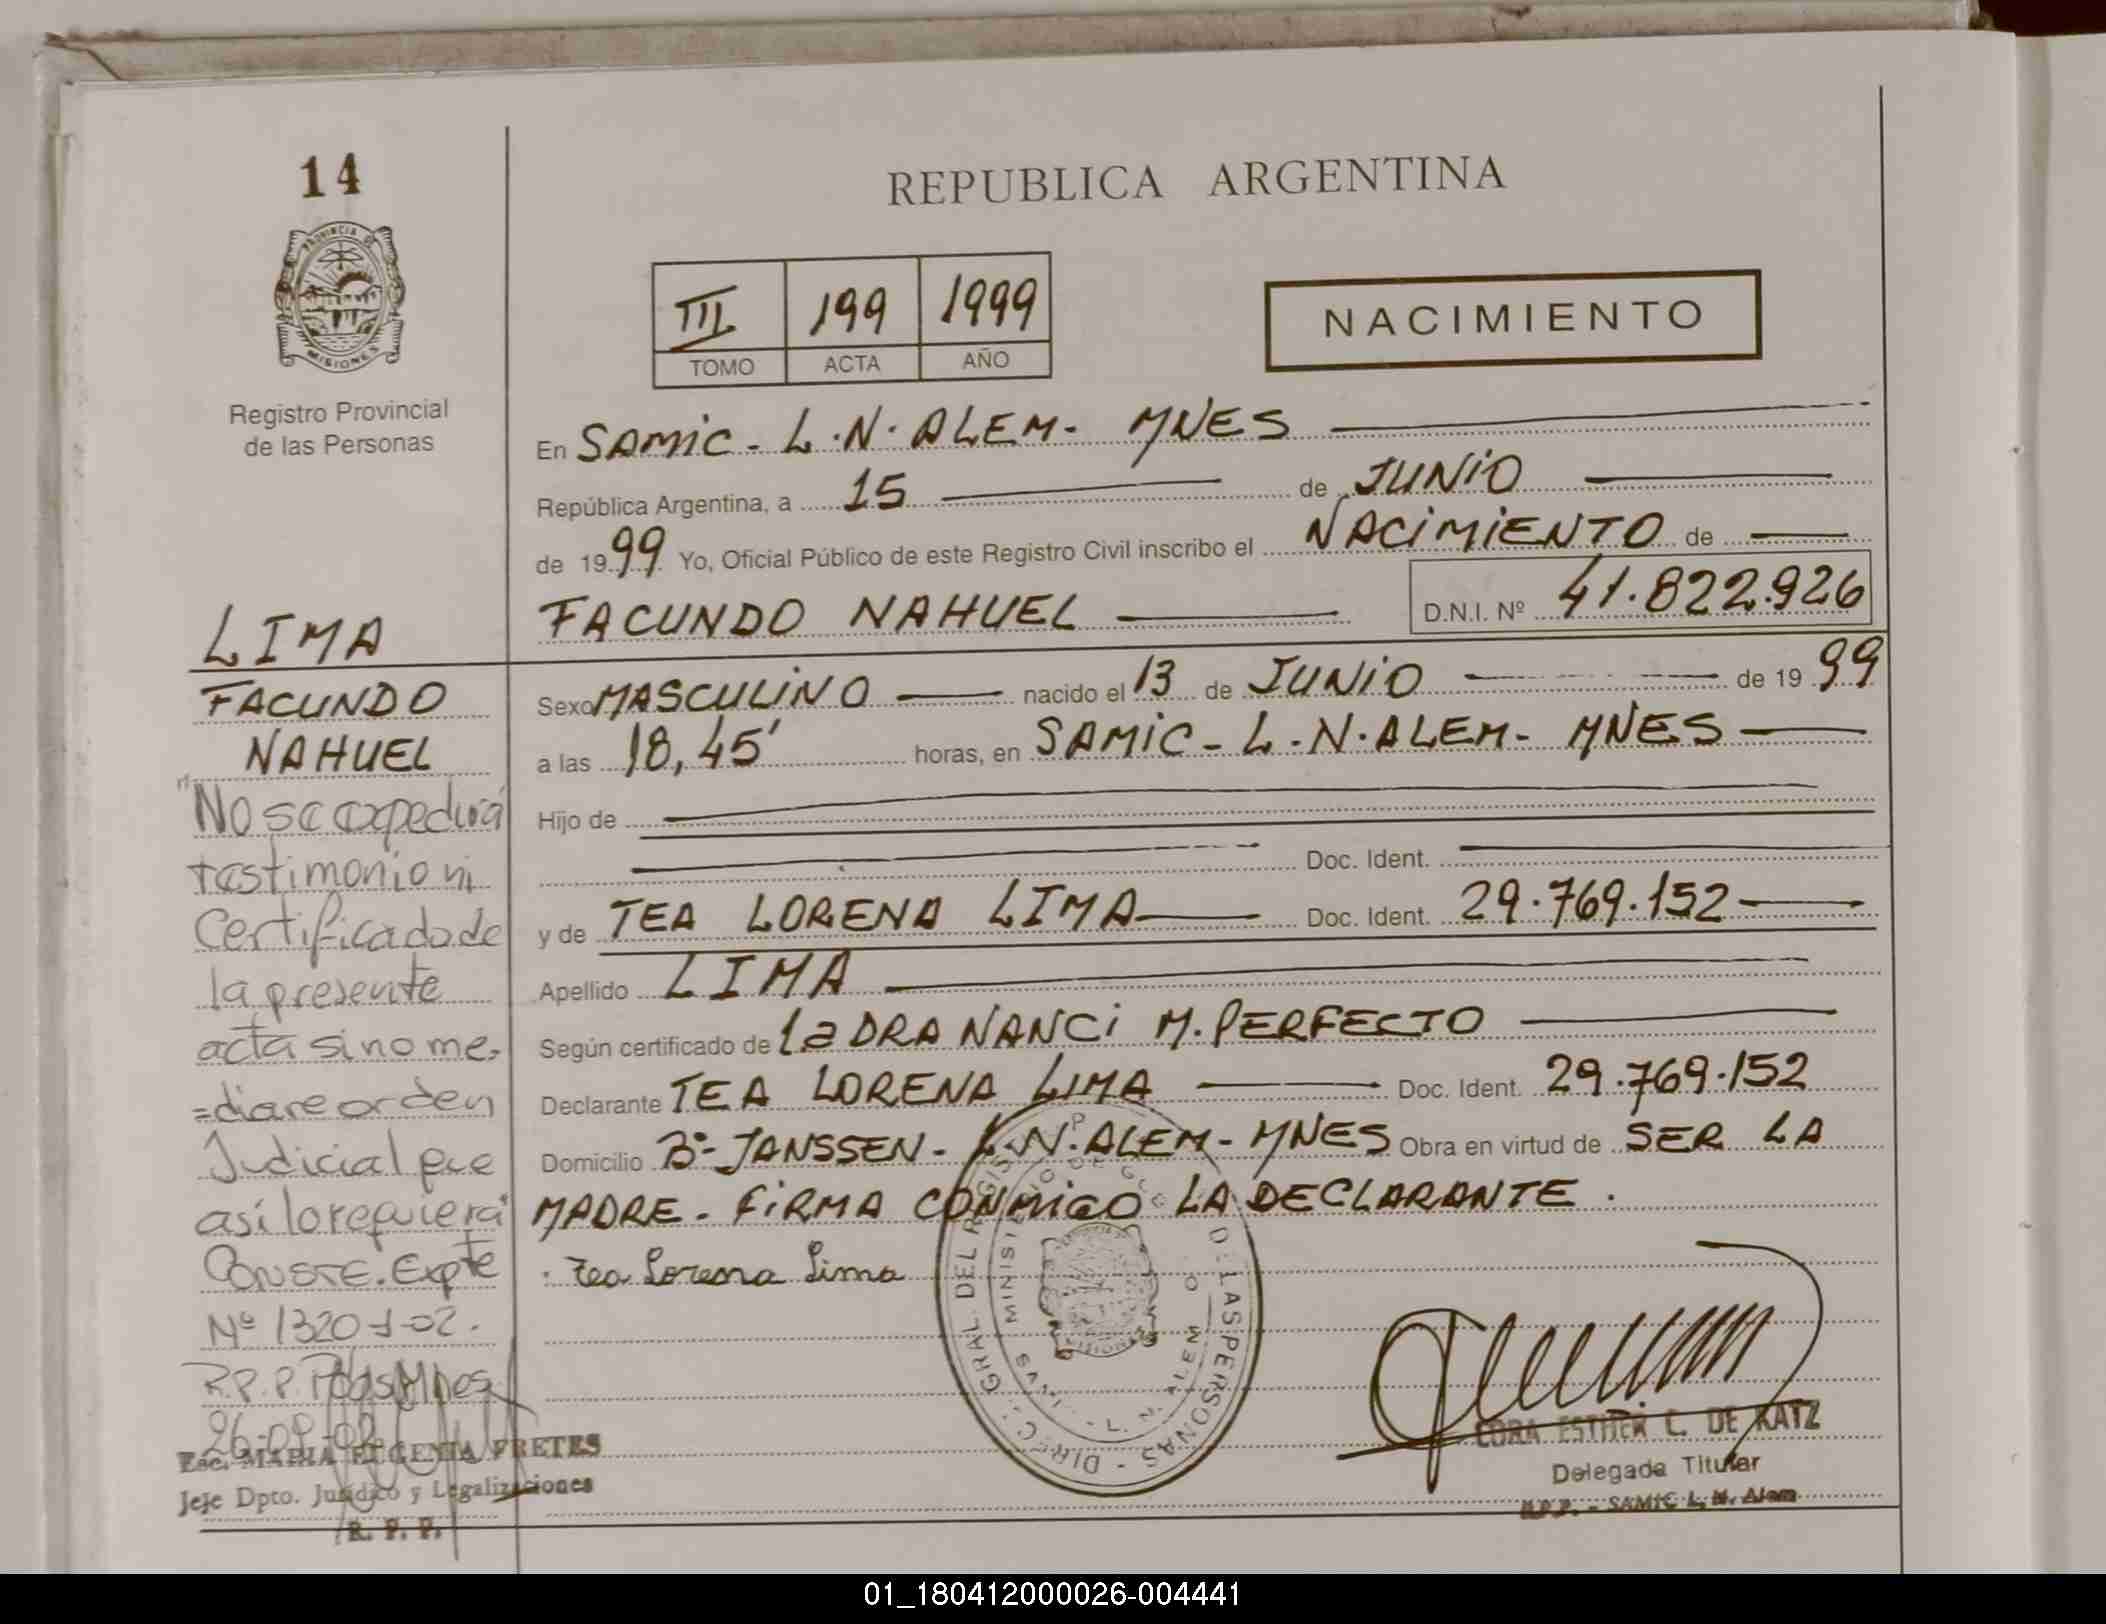 14
PROVINCIA DE
MISIONES
Registro Provincial
de las Personas
REPUBLICA ARGENTINA
III 199 1999
TOMO ACTA AÑO
NACIMIENTO
En SAMIC - L.N. ALEM - MNES
República Argentina, a 15 de JUNIO
de 1999 Yo, Oficial Público de este Registro Civil inscribo el NACIMIENTO de
FACUNDO NAHUEL D.N.I. Nº 41.822.926
Sexo MASCULINO nacido el 13 de JUNIO de 1999
a las 18,45' horas, en SAMIC - L.N. ALEM - MNES
Hijo de
Doc. Ident.
y de TEA LORENA LIMA Doc. Ident. 29.769.152
Apellido LIMA
Según certificado de la DRA NANCI M. PERFECTO
Declarante TEA LORENA LIMA Doc. Ident. 29.769.152
Domicilio Bº JANSSEN - L.N. ALEM - MNES Obra en virtud de SER LA
MADRE. FIRMA CONMIGO LA DECLARANTE.
Tea Lorena Lima
LIMA
FACUNDO
NAHUEL
"No se expedirá
testimonio ni
Certificado de
la presente
acta si no me-
=diare orden
Judicial que
así lo requiera"
CONSTE. Expte
Nº 1320-1-02.
R.P.P. Pdas Mnes
Esc. MARIA EUGENIA FRETES
Jefe Dpto. Jurídico y Legalizaciones
R. P. P.
DIREC. GRAL. DEL REGIS P DE LAS PERSONAS
MINISTERIO DE GOB
L. N. ALEM
MISIONES
CORA ESTHER C. DE KATZ
Delegada Titular
R.P.P. - SAMIC L. N. Alem
01_180412000026-004441